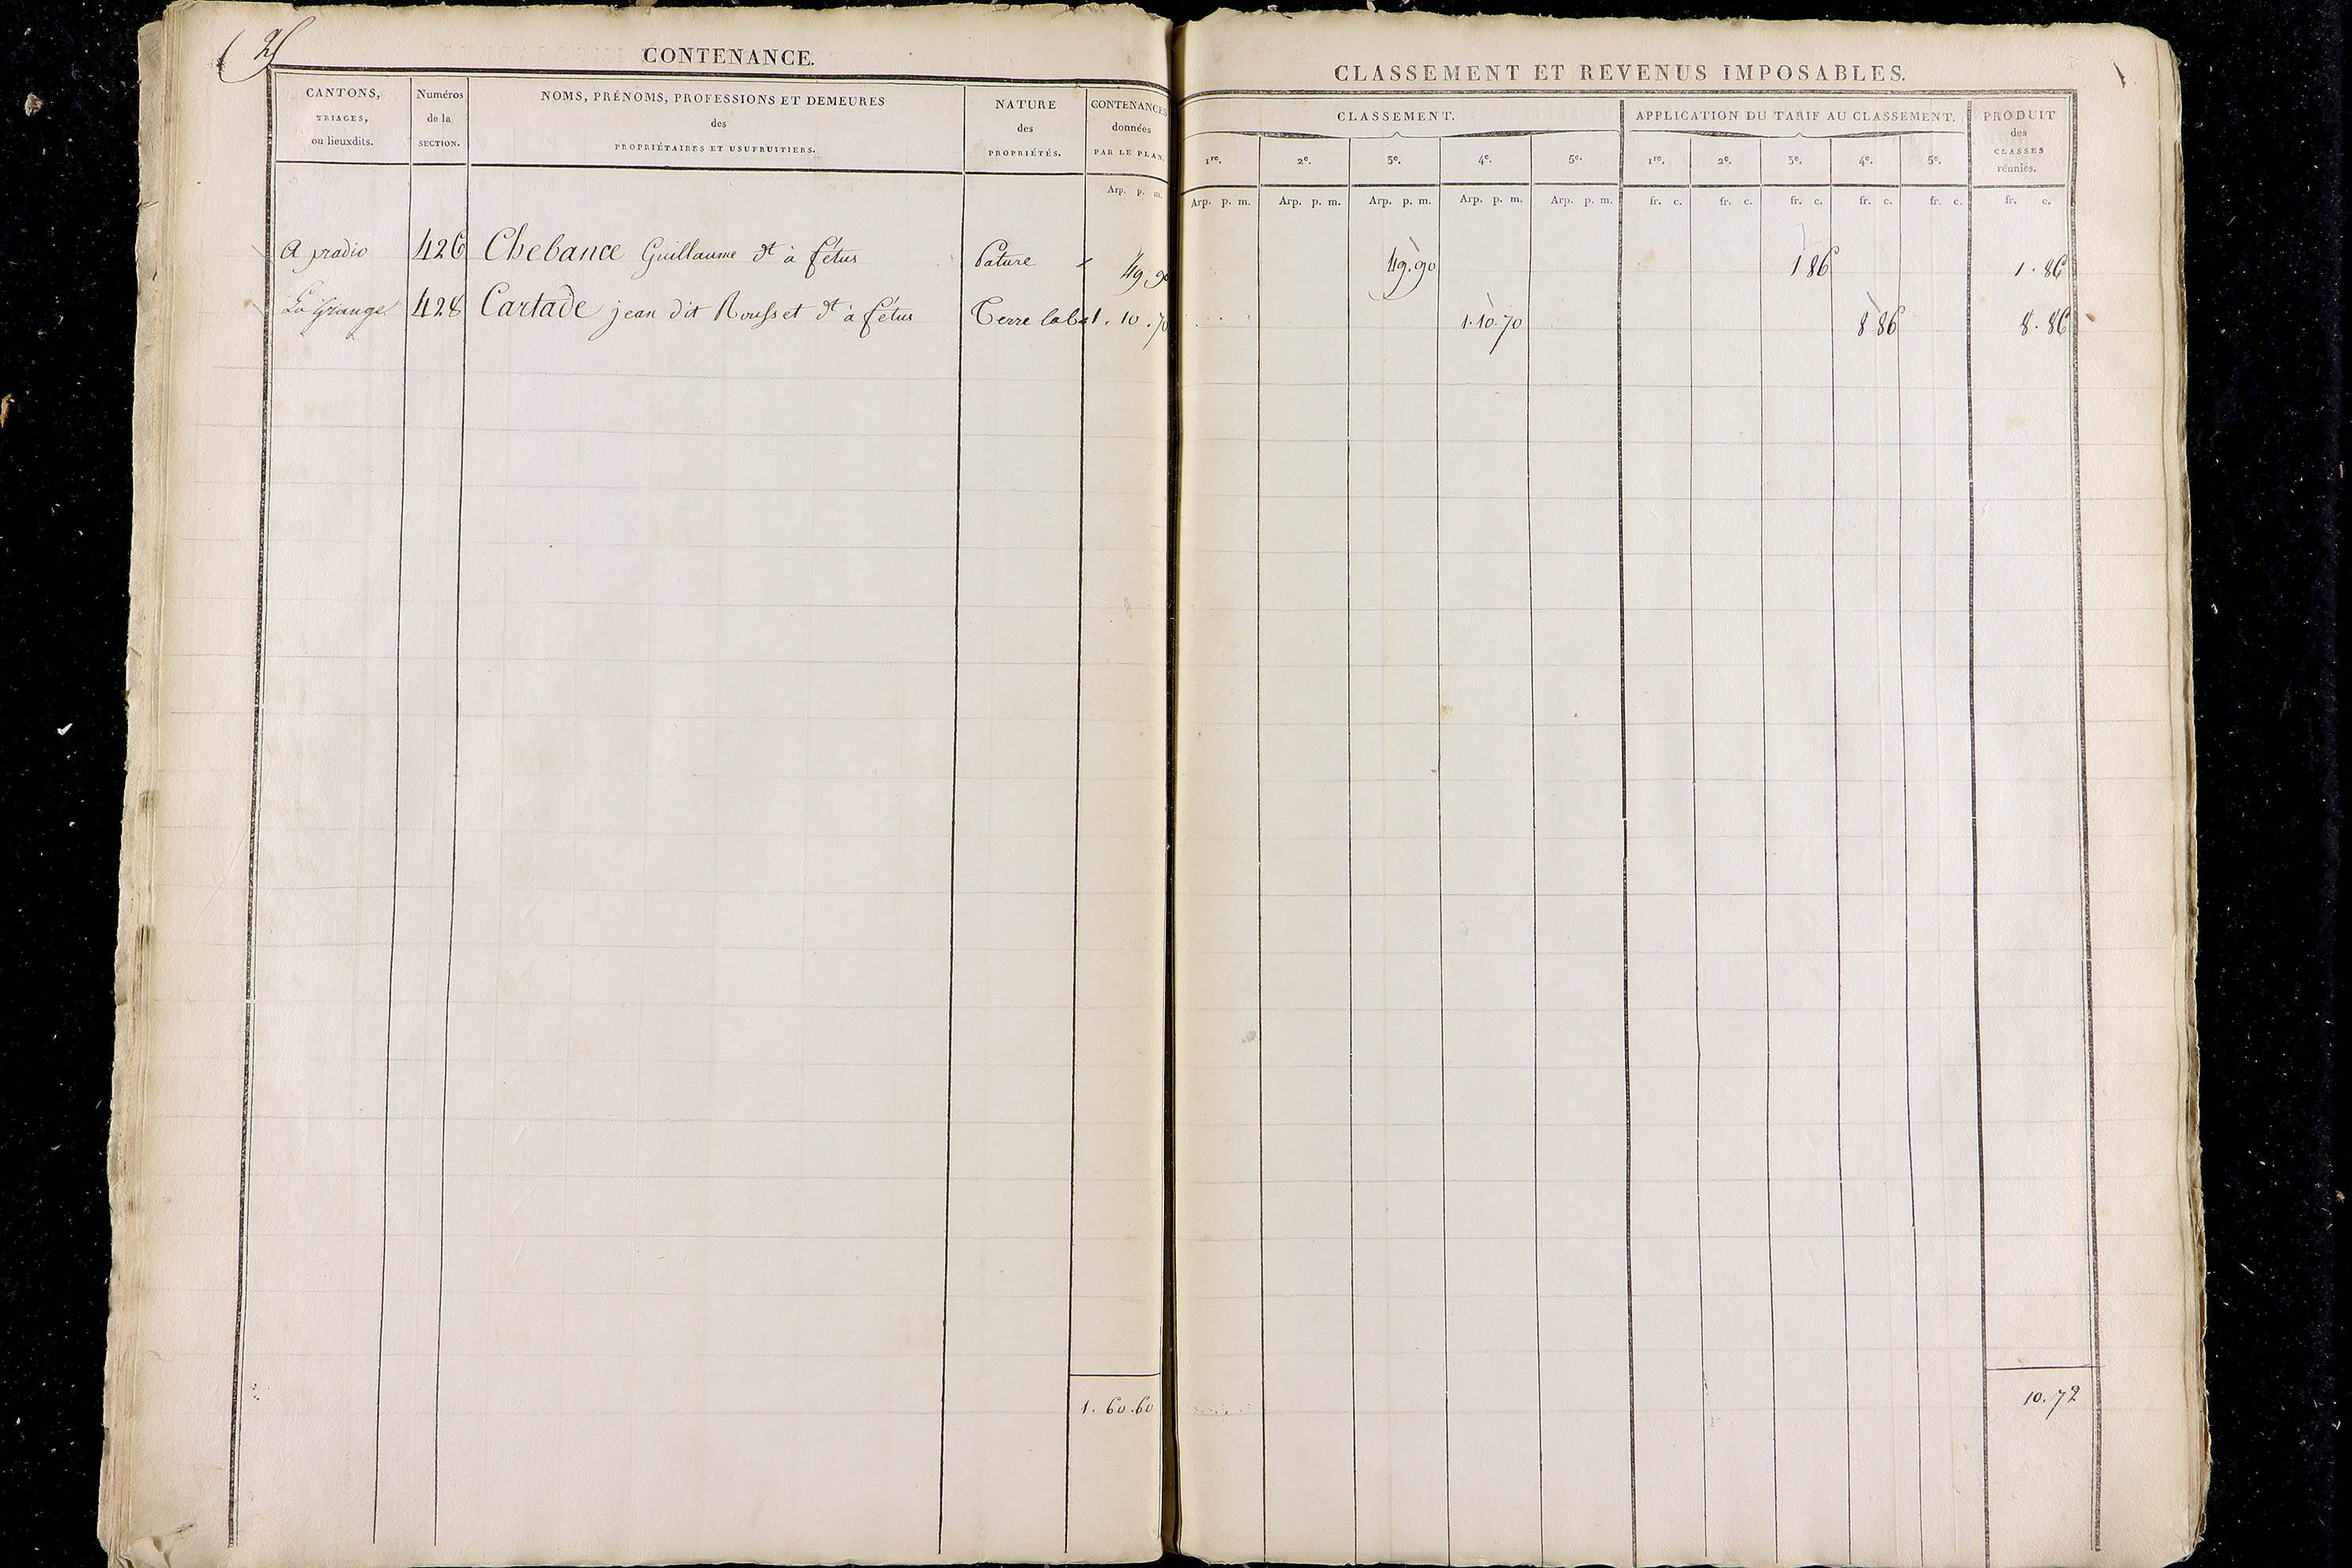 CONTENANCE.
CANTONS, TRIAGES, ou lieuxdits.
Numéros de la SECTION.
NOMS, PRÉNOMS, PROFESSIONS ET DEMEURES des PROPRIÉTAIRES ET USUFRUITIERS.
NATURE des PROPRIÉTÉS.
CONTENANCES données PAR LE PLAN.
Arp. p. m.
A pradio 426 Chebance Guillaume dt à fétus Pature 49.90
La Grange 428 Cartade jean dit Rousset dt à fétus Terre lab 1.10.70
1.60.60
CLASSEMENT ET REVENUS IMPOSABLES.
CLASSEMENT. APPLICATION DU TARIF AU CLASSEMENT. PRODUIT des CLASSES réunies.
1re. 2e. 3e. 4e. 5e. 1re. 2e. 3e. 4e. 5e.
Arp. p. m. Arp. p. m. Arp. p. m. Arp. p. m. Arp. p. m. fr. c. fr. c. fr. c. fr. c. fr. c. fr. c.
49.90 1 86 1.86
1.10.70 8 86 8.86
10.72